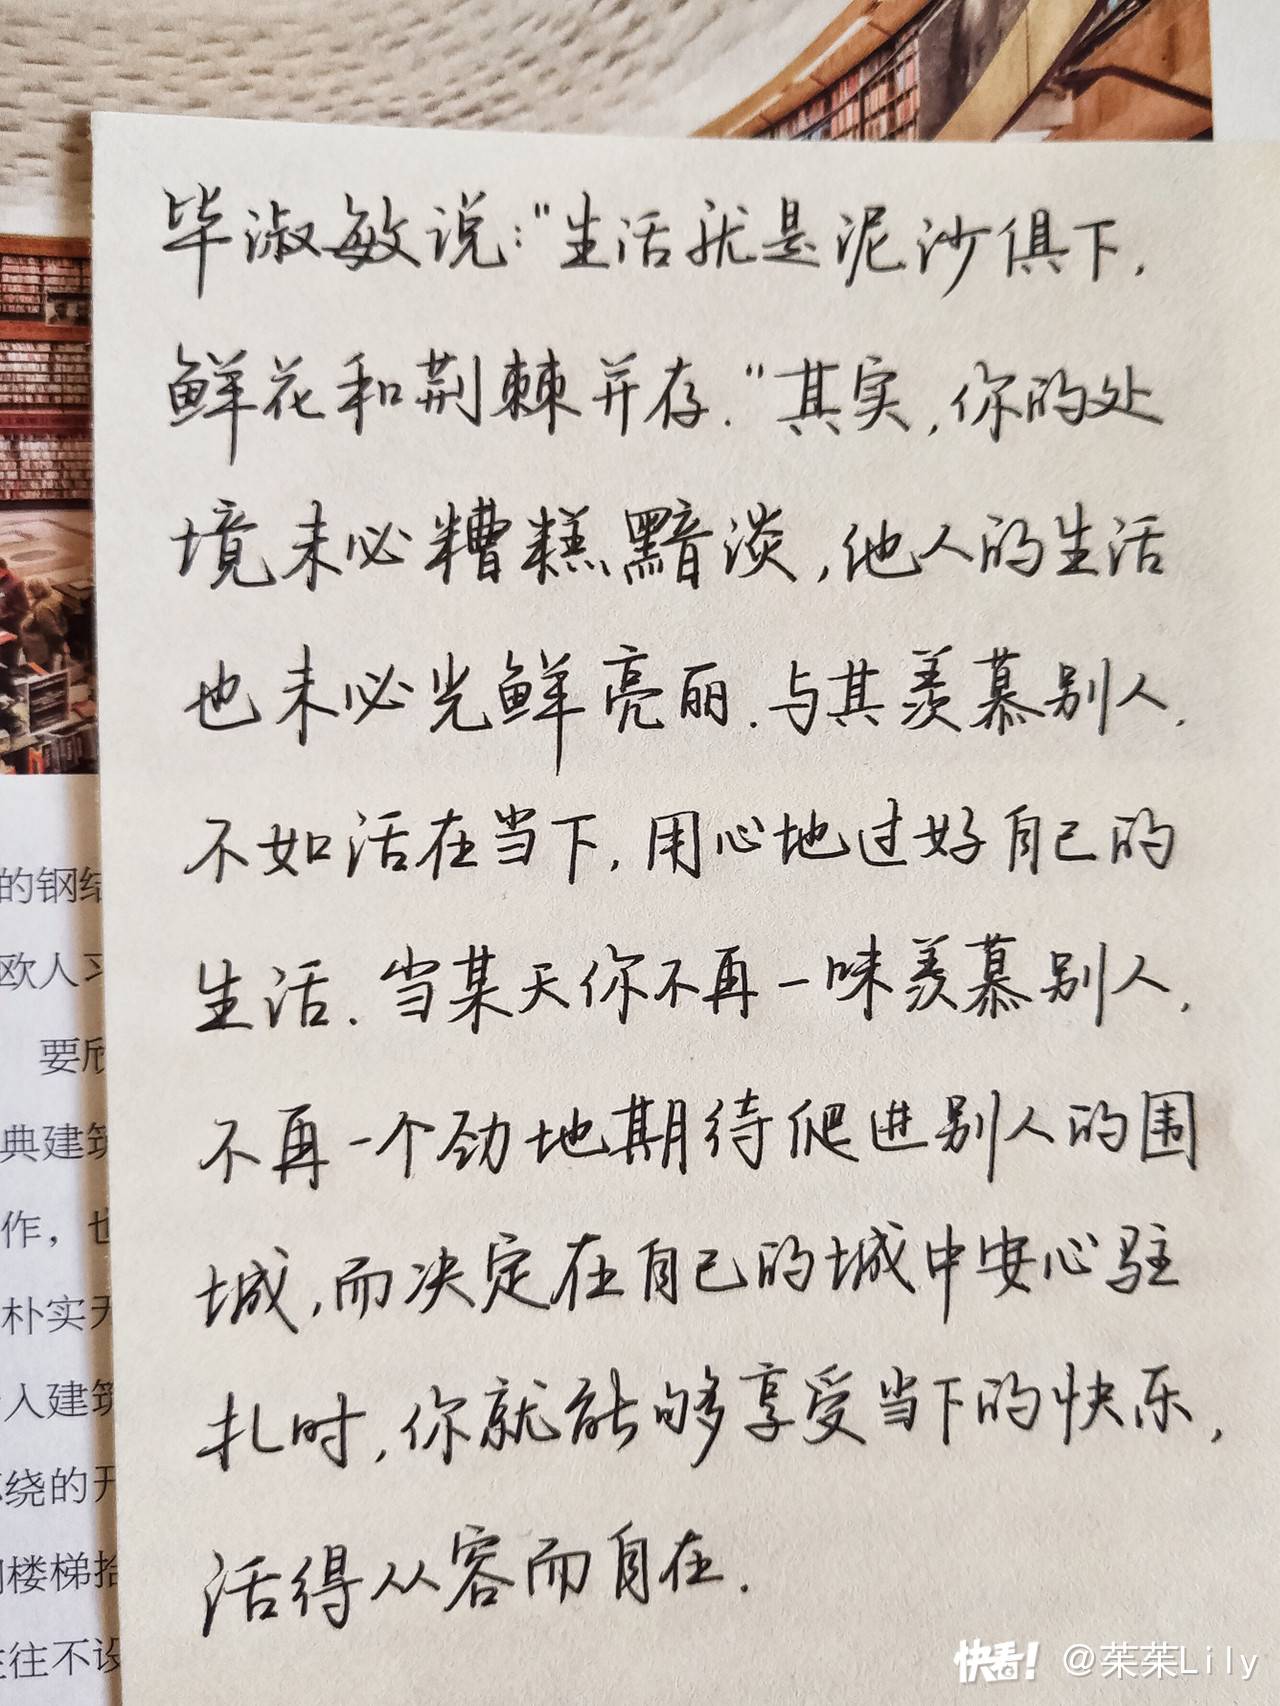 毕淑敏说:"生活就是泥沙俱下,
鲜花和荆棘并存."其实,你的处
境未必糟糕黯淡,他人的生活
也未必光鲜亮丽.与其羡慕别人,
不如活在当下,用心地过好自己的
生活.当某天你不再一味羡慕别人,
不再一个劲地期待爬进别人的围
城,而决定在自己的城中安心驻
扎时,你就能够享受当下的快乐,
活得从容而自在.
的钢结
欧人习
要欣
典建筑
作，也
朴实无
人建筑
绕的开
楼梯拾
往往不设
快看! @茱茱Lily